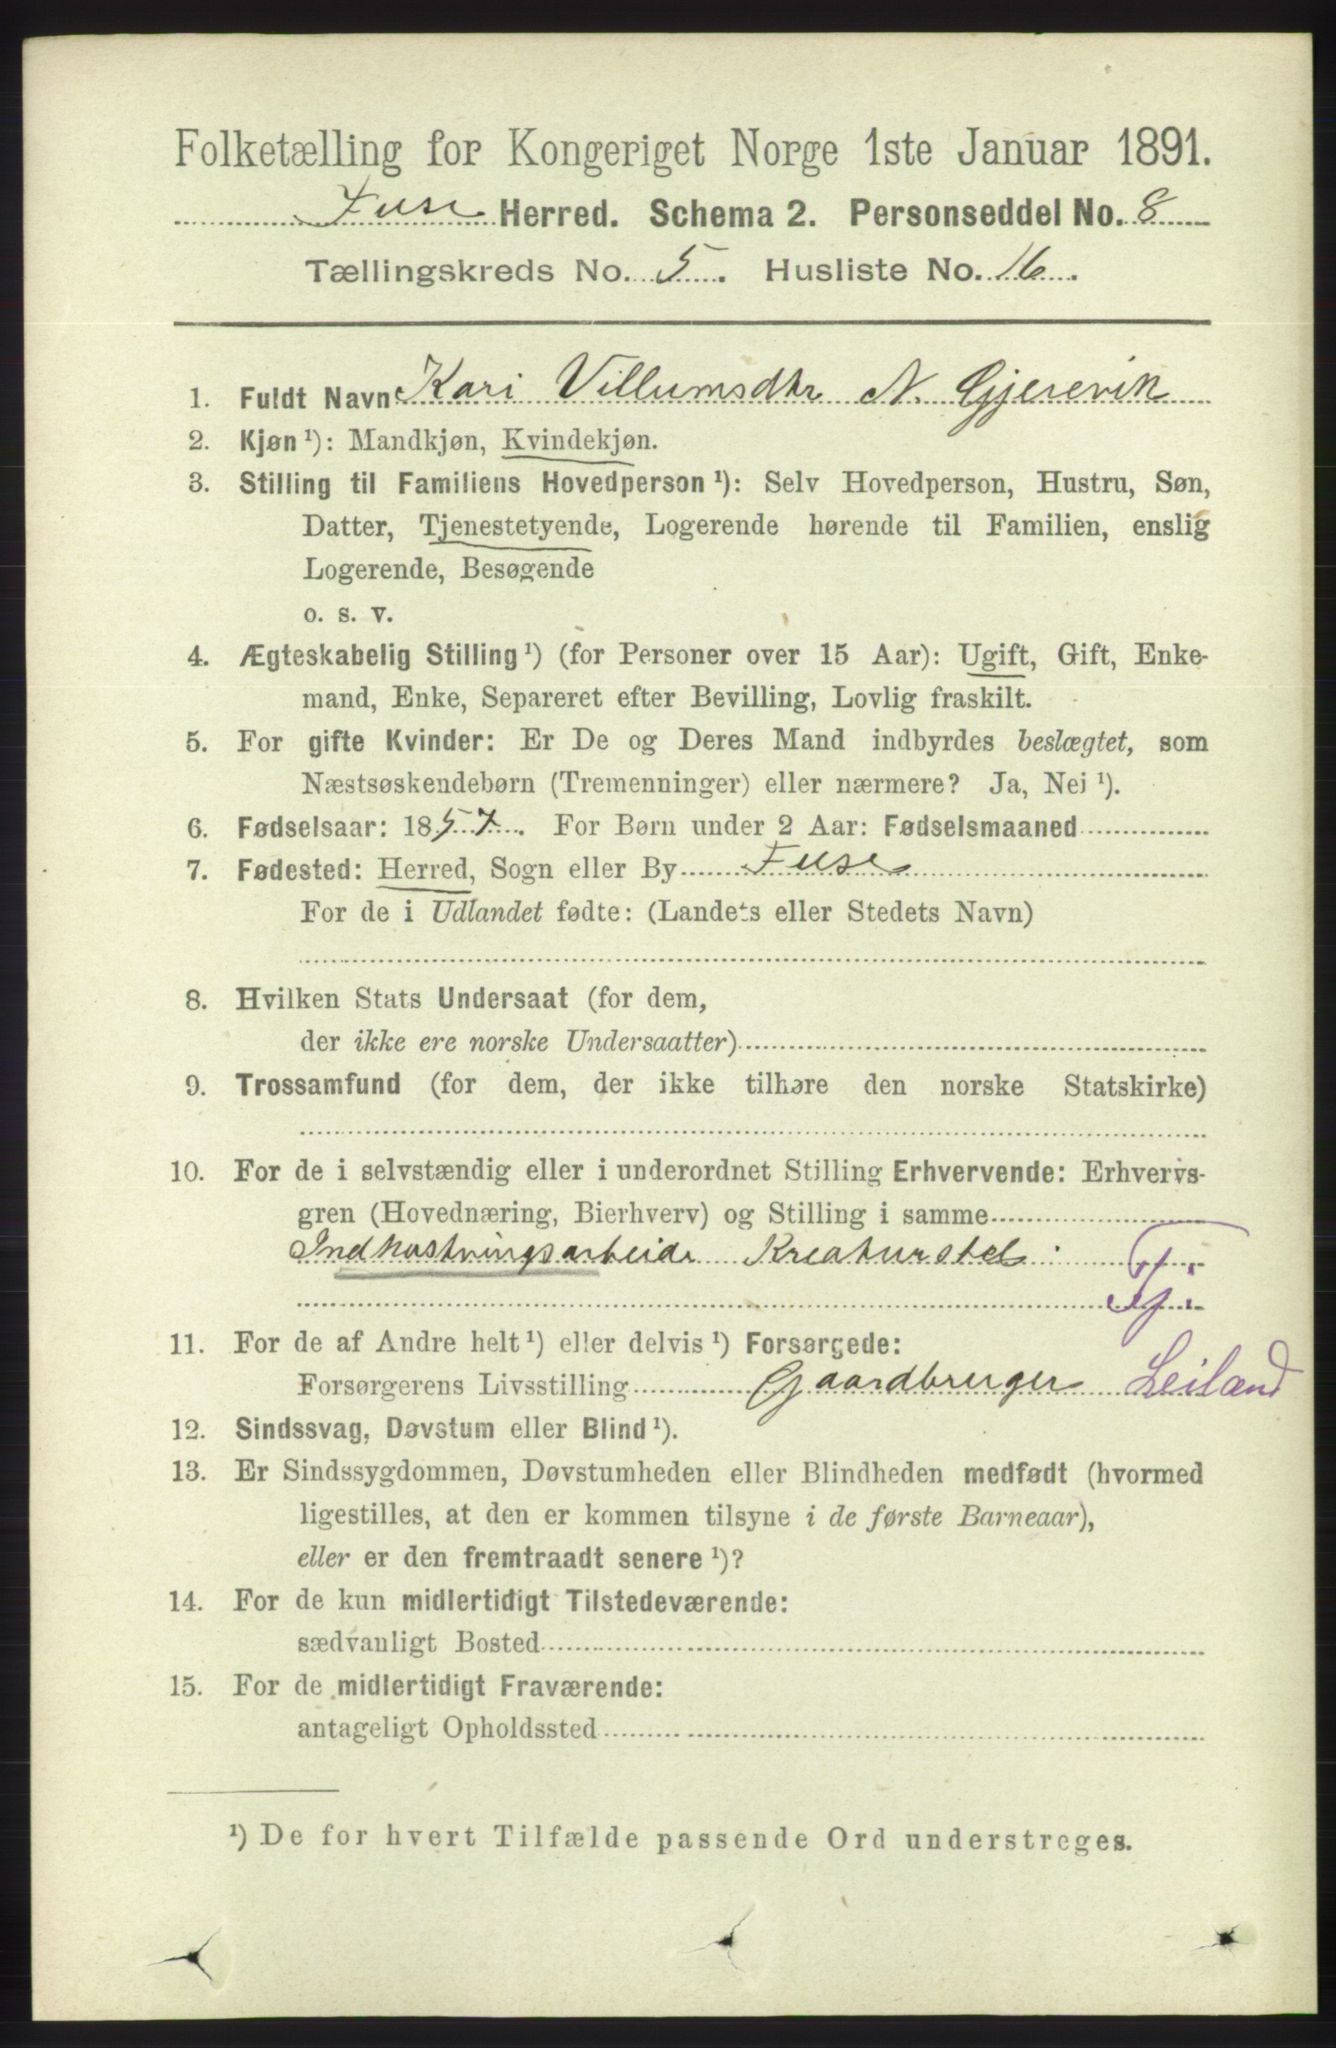 Folketælling for Kongeriget Norge 1ste Januar 1891.
Fuse Herred. Schema 2. Personseddel No. 8
Tællingskreds No. 5. Husliste No. 16.
1. Fuldt Navn Kari Villumsdtr N. Gjerevik
2. Kjøn ¹): Mandkjøn, Kvindekjøn.
3. Stilling til Familiens Hovedperson ¹): Selv Hovedperson, Hustru, Søn,
Datter, Tjenestetyende, Logerende hørende til Familien, enslig
Logerende, Besøgende
o. s. v.
4. Ægteskabelig Stilling ¹) (for Personer over 15 Aar): Ugift, Gift, Enke-
mand, Enke, Separeret efter Bevilling, Lovlig fraskilt.
5. For gifte Kvinder: Er De og Deres Mand indbyrdes beslægtet, som
Næstsøskendebørn (Tremenninger) eller nærmere? Ja, Nei ¹).
6. Fødselsaar: 1857. For Børn under 2 Aar: Fødselsmaaned
7. Fødested: Herred, Sogn eller By Fuse
For de i Udlandet fødte: (Landets eller Stedets Navn)
8. Hvilken Stats Undersaat (for dem,
der ikke ere norske Undersaatter)
9. Trossamfund (for dem, der ikke tilhøre den norske Statskirke)
10. For de i selvstændig eller i underordnet Stilling Erhvervende: Erhvervs-
gren (Hovednæring, Bierhverv) og Stilling i samme
Indhustringsarbeide Kreaturstel
Tj.
11. For de af Andre helt ¹) eller delvis ¹) Forsørgede:
Forsørgerens Livsstilling Gaardbruger Leilænd
12. Sindssvag, Døvstum eller Blind ¹).
13. Er Sindssygdommen, Døvstumheden eller Blindheden medfødt (hvormed
ligestilles, at den er kommen tilsyne i de første Barneaar),
eller er den fremtraadt senere ¹)?
14. For de kun midlertidigt Tilstedeværende:
sædvanligt Bosted
15. For de midlertidigt Fraværende:
antageligt Opholdssted
¹) De for hvert Tilfælde passende Ord understreges.